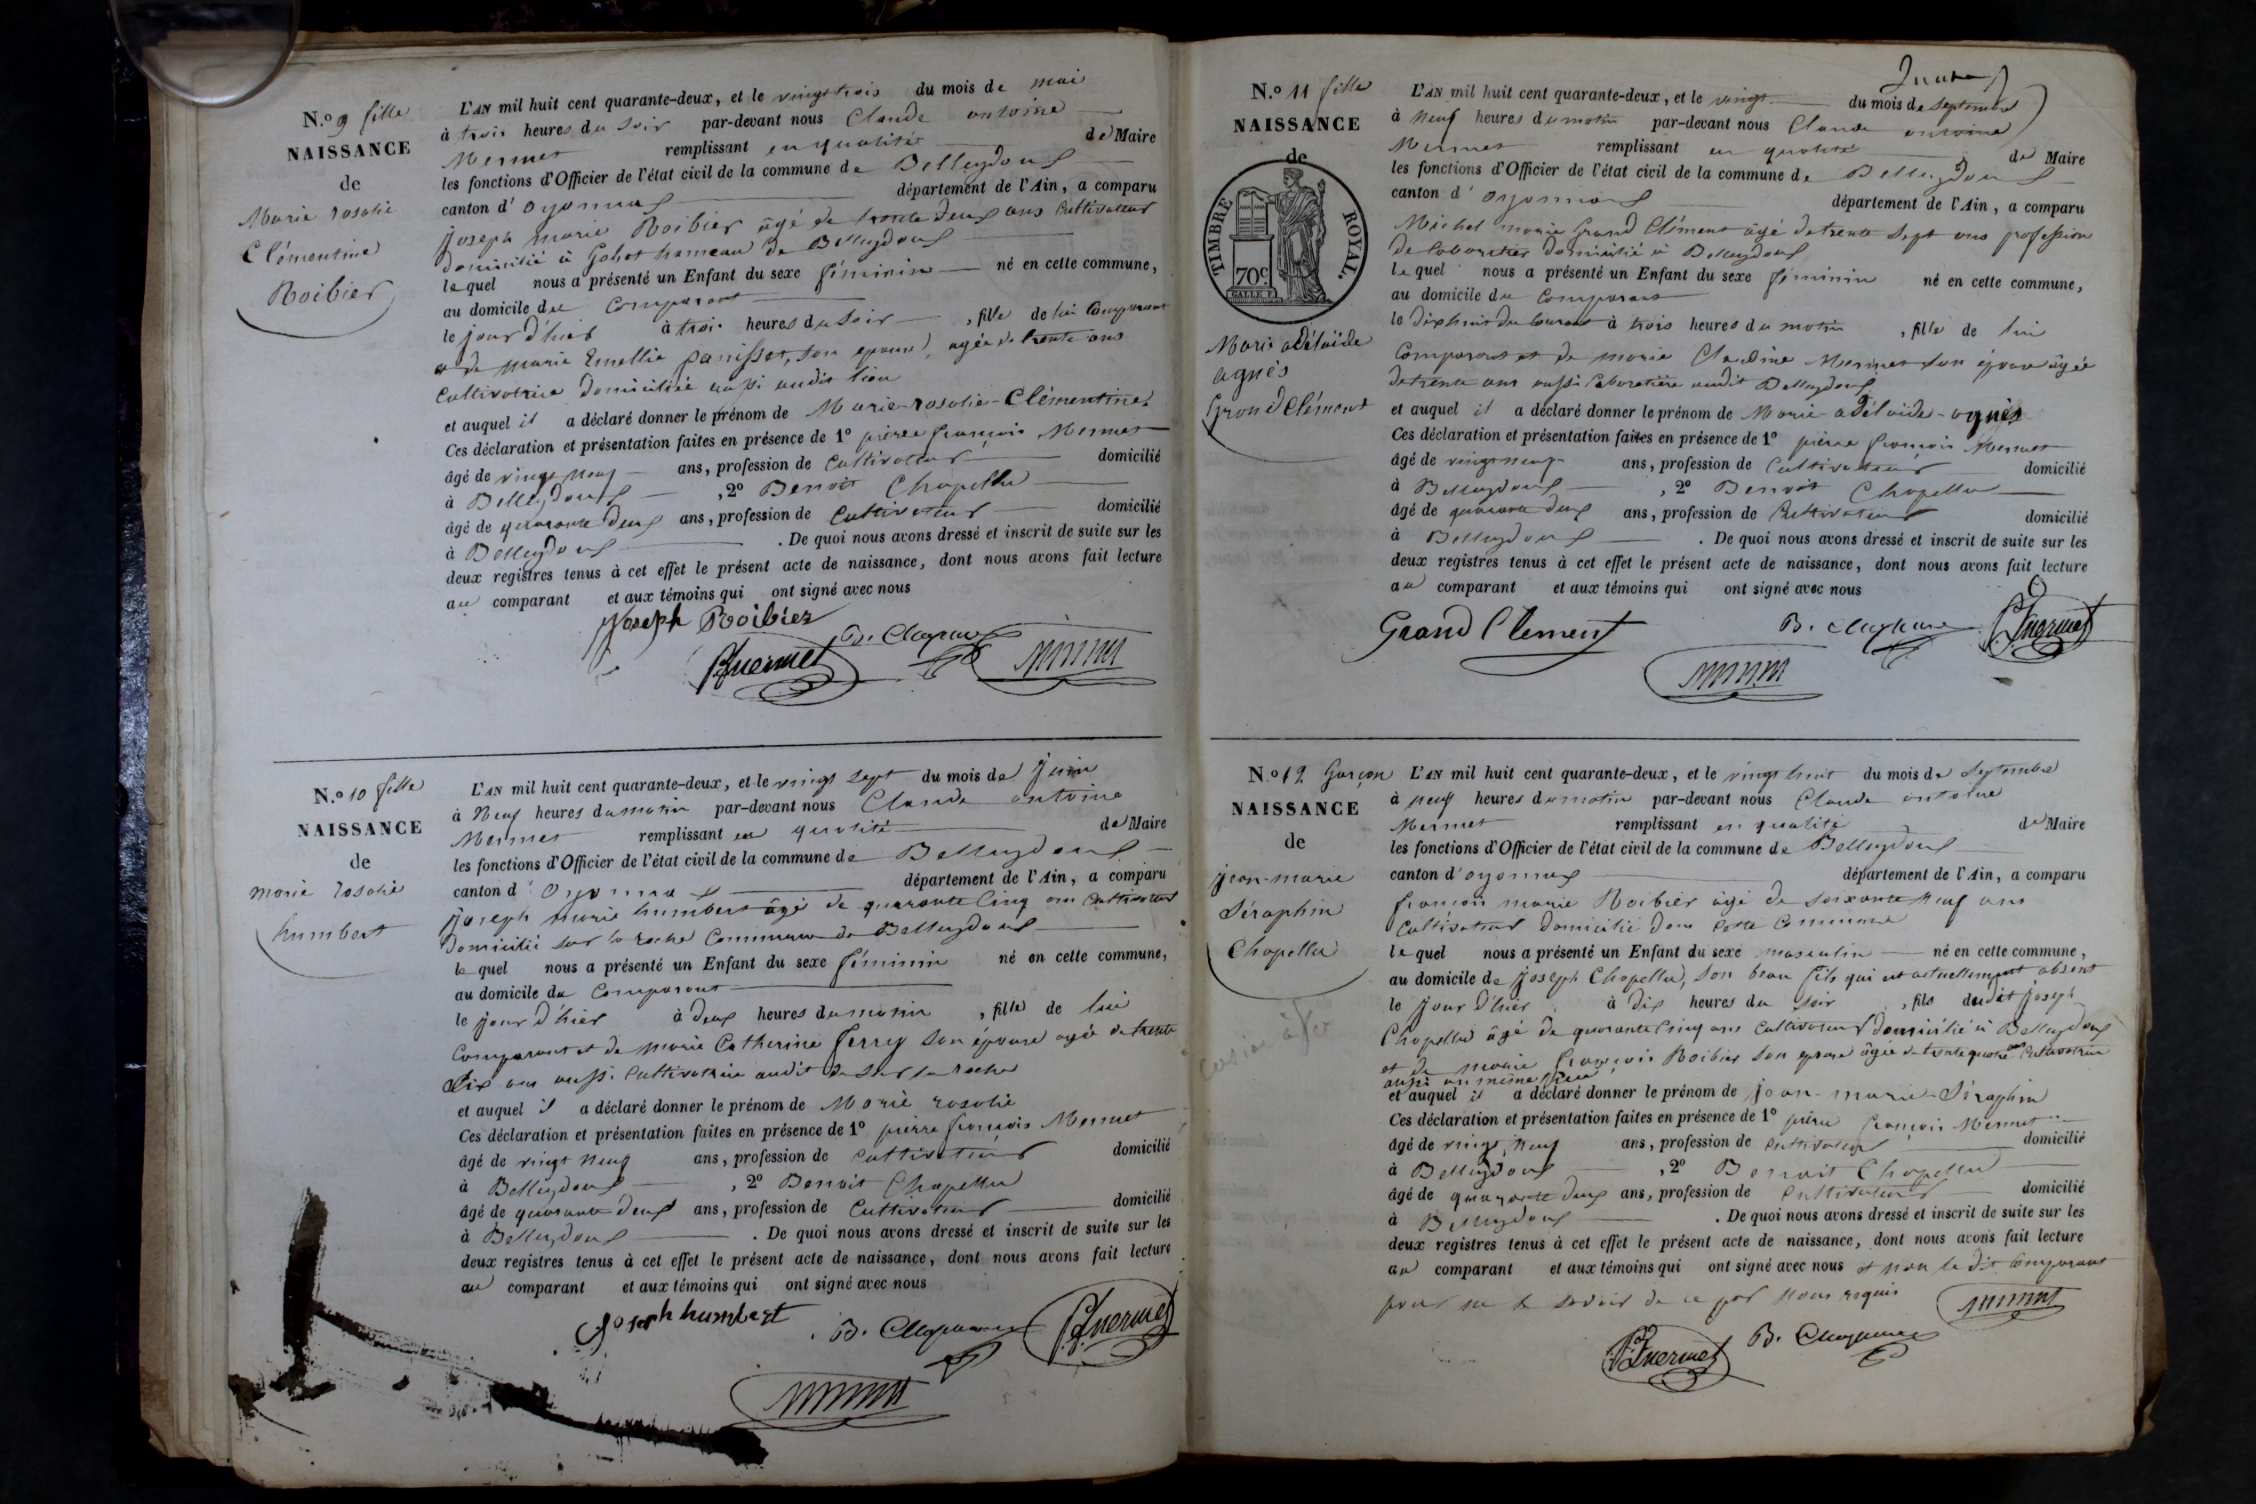 N.o 9 fille
NAISSANCE
de
Marie rosalie
Clémentine
Roibier
L'AN mil huit cent quarante-deux, et le vingt trois du mois de mai
à trois heures du soir par-devant nous Claude antoine
Mermet remplissant en qualité de Maire
les fonctions d'Officier de l'état civil de la commune de Belleydoux
canton d'oyonnax département de l'Ain, a comparu
joseph marie Roibier âgé de trente deux ans cultivateur
domicilié à Gobet hameau de Belleydoux
lequel nous a présenté un Enfant du sexe féminin né en cette commune,
au domicile du Comparant
le jour d'hier à trois heures du soir, fille de lui Comparant
et de marie Emellie panisset, son epouse, agée de trente ans
Cultivatrice domiciliée aussi audit lieu
et auquel il a déclaré donner le prénom de Marie-rosalie-Clémentine
Ces déclaration et présentation faites en présence de 1o pierre françois Mermet
âgé de vingt neuf ans, profession de Cultivateur domicilié
à Belleydoux, 2o Benoit Chapellu
âgé de quarante deux ans, profession de Cultivateur domicilié
à Belleydoux. De quoi nous avons dressé et inscrit de suite sur les
deux registres tenus à cet effet le présent acte de naissance, dont nous avons fait lecture
au comparant et aux témoins qui ont signé avec nous
Joseph Roibier
N.o 10 fille
NAISSANCE
de
marie rosalie
humbert
L'AN mil huit cent quarante-deux, et le vingt sept du mois de juin
à Neuf heures du matin par-devant nous Claude antoine
Mermet remplissant en qualité de Maire
les fonctions d'Officier de l'état civil de la commune de Belleydoux
canton d'Oyonnax département de l'Ain, a comparu
joseph marie humbert âgé de quarante Cinq ans Cultivateur
domicilié sur la roche Commune de Belleydoux
lequel nous a présenté un Enfant du sexe féminin né en cette commune,
au domicile du Comparant
le jour d'hier à deux heures du matin, fille de lui
Comparant et de marie Catherine ferrey son épouse agée de trente
Six ans aussi Cultivatrice audit de sur la roche
et auquel il a déclaré donner le prénom de Marie rosalie
Ces déclaration et présentation faites en présence de 1o pierre françois Mermet
âgé de vingt neuf ans, profession de Cultivateur domicilié
à Belleydoux, 2o Benoit Chapellu
âgé de quarante deux ans, profession de Cultivateur domicilié
à Belleydoux. De quoi nous avons dressé et inscrit de suite sur les
deux registres tenus à cet effet le présent acte de naissance, dont nous avons fait lecture
au comparant et aux témoins qui ont signé avec nous
Joseph humbert
N.o 11 fille
NAISSANCE
de
TIMBRE ROYAL.
70c
Marie adélaïde
agnès
Grand Clément
L'AN mil huit cent quarante-deux, et le vingt du mois de septembre
à Neuf heures du matin par-devant nous Claude antoine
Mermet remplissant en qualité de Maire
les fonctions d'Officier de l'état civil de la commune de Belleydoux
canton d'oyonnax département de l'Ain, a comparu
Michel marie Grand Clément âgé de trente sept ans profession
de laboratier domicilié à Belleydoux
lequel nous a présenté un Enfant du sexe féminin né en cette commune,
au domicile du Comparant
le dixhuit du Courant à trois heures du matin, fille de lui
Comparant et de marie Claudine Mermet son épouse âgée
de trente ans aussi laboratière audit Belleydoux
et auquel il a déclaré donner le prénom de Marie-adélaïde-agnès
Ces déclaration et présentation faites en présence de 1o pierre françois Mermet
âgé de vingt neuf ans, profession de Cultivateur domicilié
à Belleydoux, 2o Benoit Chapellu
âgé de quarante deux ans, profession de Cultivateur domicilié
à Belleydoux. De quoi nous avons dressé et inscrit de suite sur les
deux registres tenus à cet effet le présent acte de naissance, dont nous avons fait lecture
au comparant et aux témoins qui ont signé avec nous
Grand Clement
N.o 12 Garçon
NAISSANCE
de
jean-marie
Séraphin
Chapellu
L'AN mil huit cent quarante-deux, et le vingt huit du mois de septembre
à neuf heures du matin par-devant nous Claude antoine
Mermet remplissant en qualité de Maire
les fonctions d'Officier de l'état civil de la commune de Belleydoux
canton d'oyonnax département de l'Ain, a comparu
françois marie Roibier âgé de soixante neuf ans
Cultivateur domicilié dans cette Commune
lequel nous a présenté un Enfant du sexe masculin né en cette commune,
au domicile de joseph Chapellu, son beau fils qui est actuellement absent
le jour d'hier à dix heures du soir, fils dudit joseph
Chapellu âgé de quarante Cinq ans Cultivateur domicilié à Belleydoux
et de marie françoise Roibier son epouse âgée de trente quatre ans Cultivatrice
aussi au même lieu
et auquel il a déclaré donner le prénom de jean-marie-Séraphin
Ces déclaration et présentation faites en présence de 1o pierre françois Mermet
âgé de vingt neuf ans, profession de Cultivateur domicilié
à Belleydoux, 2o Benoit Chapellu
âgé de quarante deux ans, profession de Cultivateur domicilié
à Belleydoux. De quoi nous avons dressé et inscrit de suite sur les
deux registres tenus à cet effet le présent acte de naissance, dont nous avons fait lecture
au comparant et aux témoins qui ont signé avec nous et non le dit Comparant
pour ne le savoir de ce par nous requis